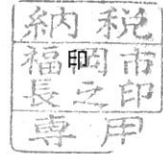 納税
福岡市
印
長之印
専用